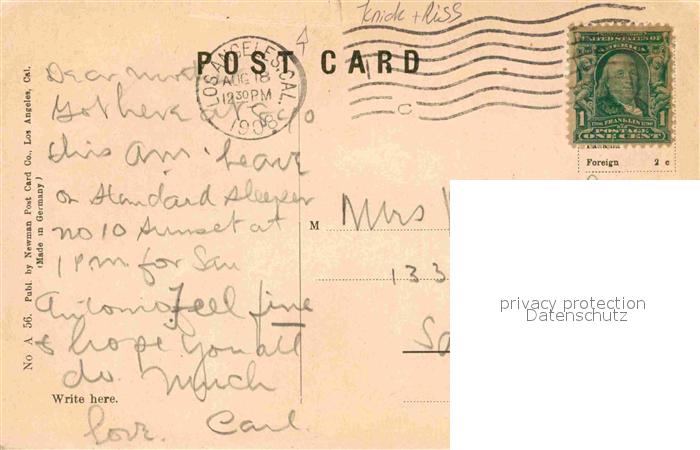 Knick + Riss
POST CARD
LOS ANGELES, CAL.
AUG 18
12 30 PM
1908
C
UNITED STATES OF
AMERICA
1 FRANKLIN 1
POSTAGE
ONE CENT
Foreign 2 c
Dear
Got here at 10
this am. leave
on Standard sleeper
no 10 Sunset at
1 pm for San
Antonio Feel fine
& hope you all
do. Much
love. Carl.
Write here.
M Mrs
133
Sa
No A 56. Publ. by Newman Post Card Co., Los Angeles, Cal.
(Made in Germany)
privacy protection
Datenschutz